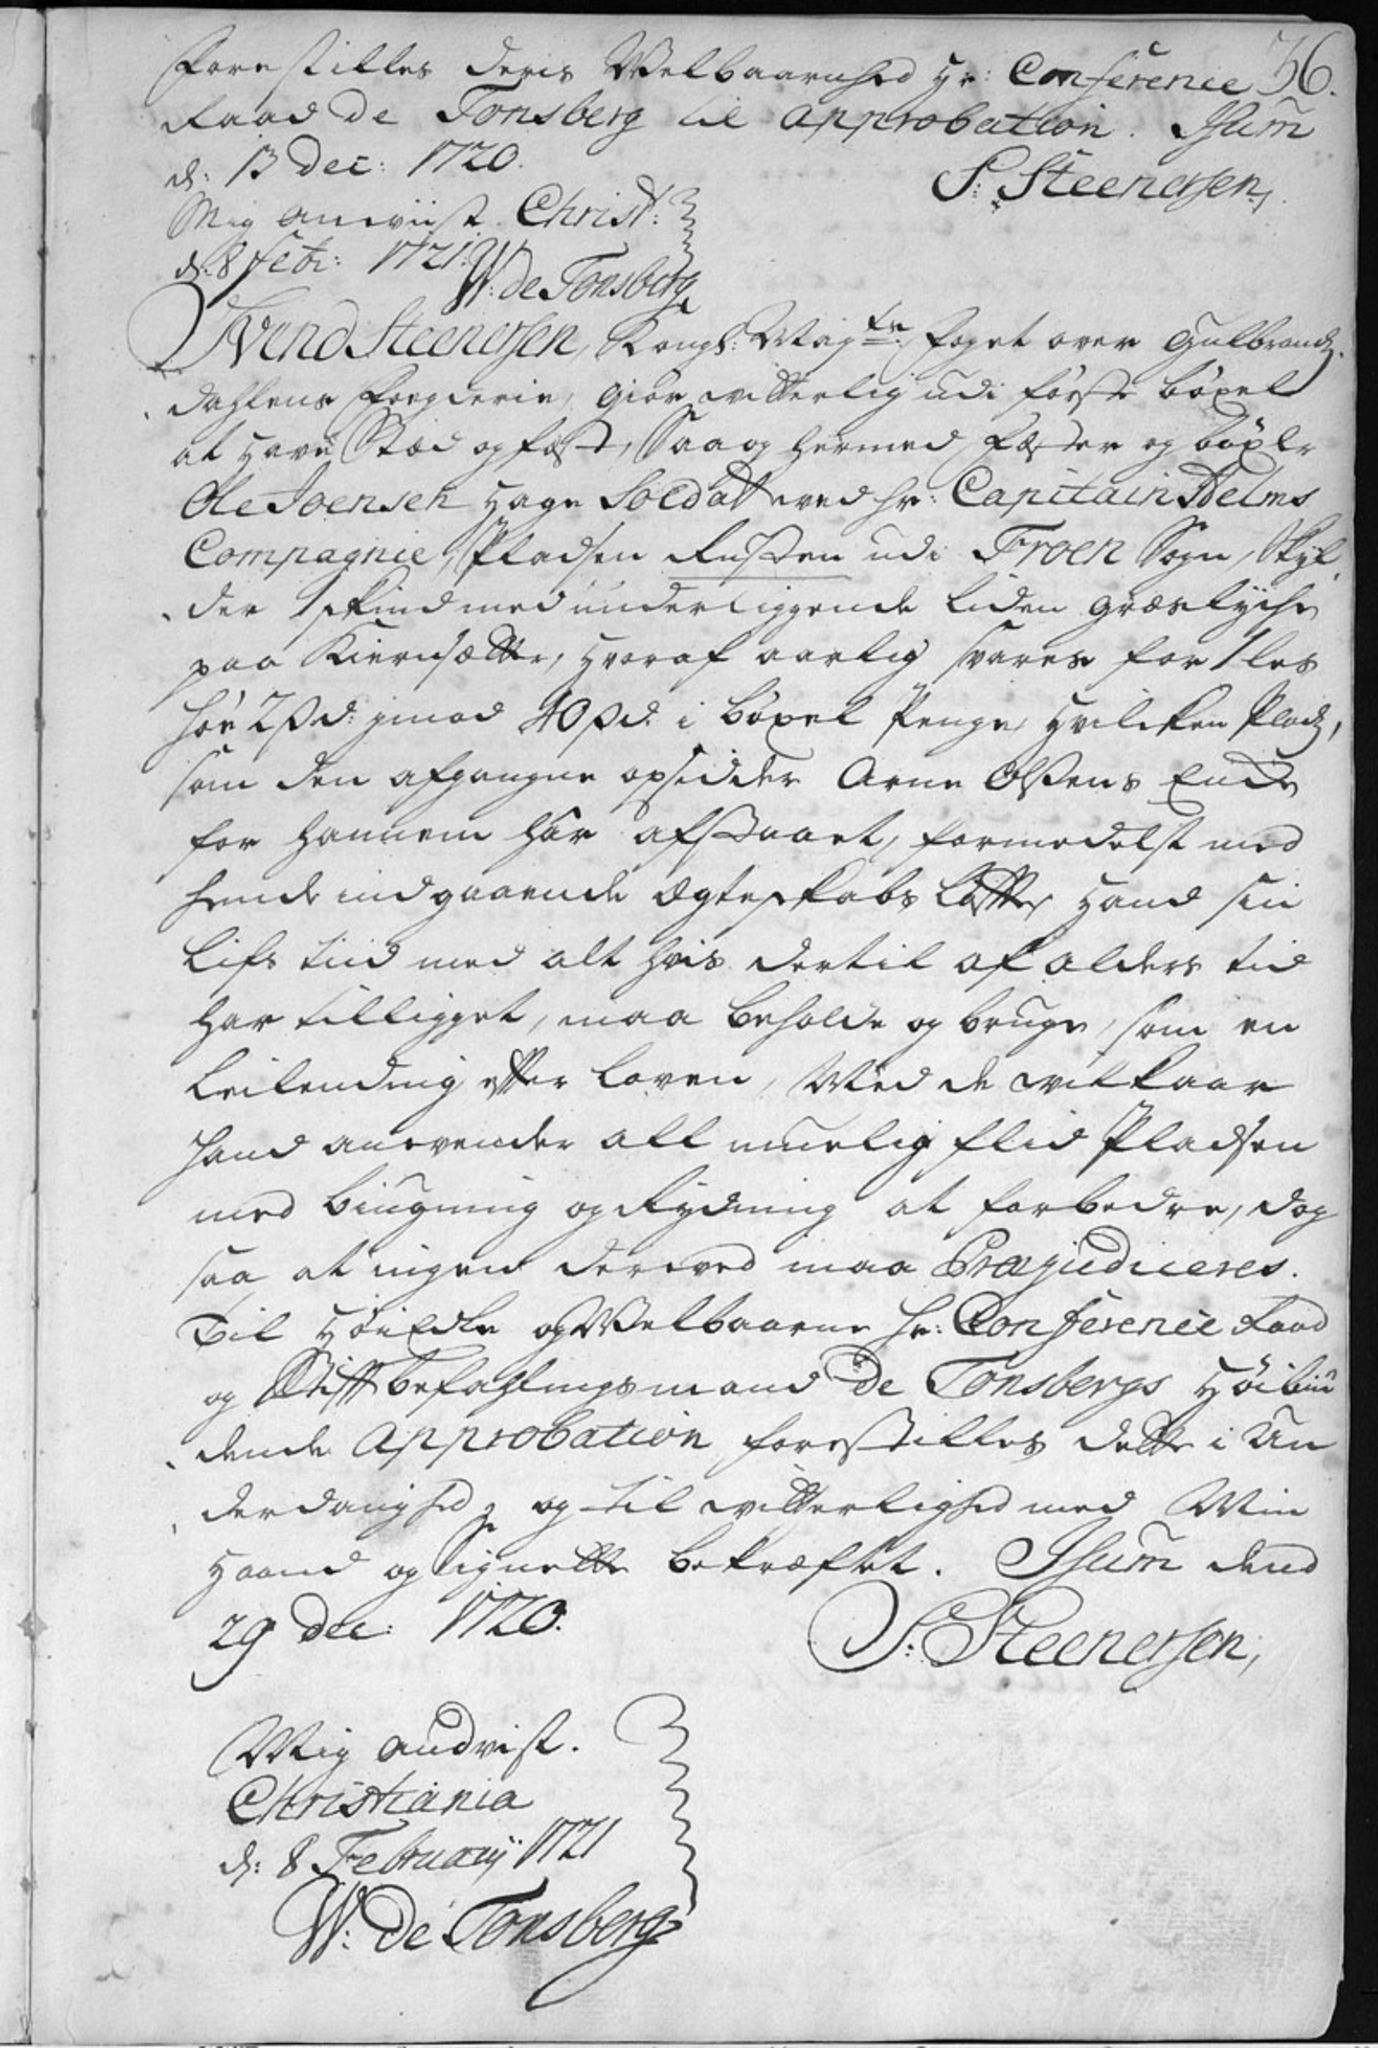 forestilles deris Welbaarenhed Hr: Conference 36.
Raad de Tonsberg til approbation. Isum
d: 13 Dec: 1720.
S: Steenersen,
Mig anviist Christ:
d: 8 Febr: 1721. W: de Tonsberg
Svend Steenersen, Kongl: May: foget over Gulbrands
dahlens fogderie, giør witterlig udi første bøxel
at have Sted og fest, saa og hermed fester og bøxler
Ole Joensen Hage Soldat ved hr: Capitain Helms
Compagnie, Pladsen Rusten udi Froen Sogn, Skyl
der 1 skind med underliggende liden græslyche
paa Kiernsættr, hvoraf aarlig svares for 1 les
høe 2 s d: imod 40 s d. i bøxel Penge, hvilcken Plads,
som den afgangne opsidder Arne Olsens Encke
for hannem har afstaaet, formedelst med
hende indgaaende Ægteskabs løfte, hand sin
lifs tiid med alt hvis dertil af alders tid
har tilligget, maa beholde og bruge, som en
leilending efter loven, Med de wilkaar
hand anvender all muelig flid Pladsen
med biugning og Rydning at forbedre, dog
saa at ingen derved maa Præjudiceres.
Til HøiEdle og Welbaarne hr: Conference Raad
og Stiftbefahlingsmand de Tonsbergs Høibiu
dende Approbation forestilles dette i Un
derdanighed, og til witterlighed med Min
Haand og Signette bekræftet. Isum dend
29 Dec: 1720.
S: Steenersen,
Mig andvist.
Christiania
d: 8 Februarij 1721
W: de Tonsberg